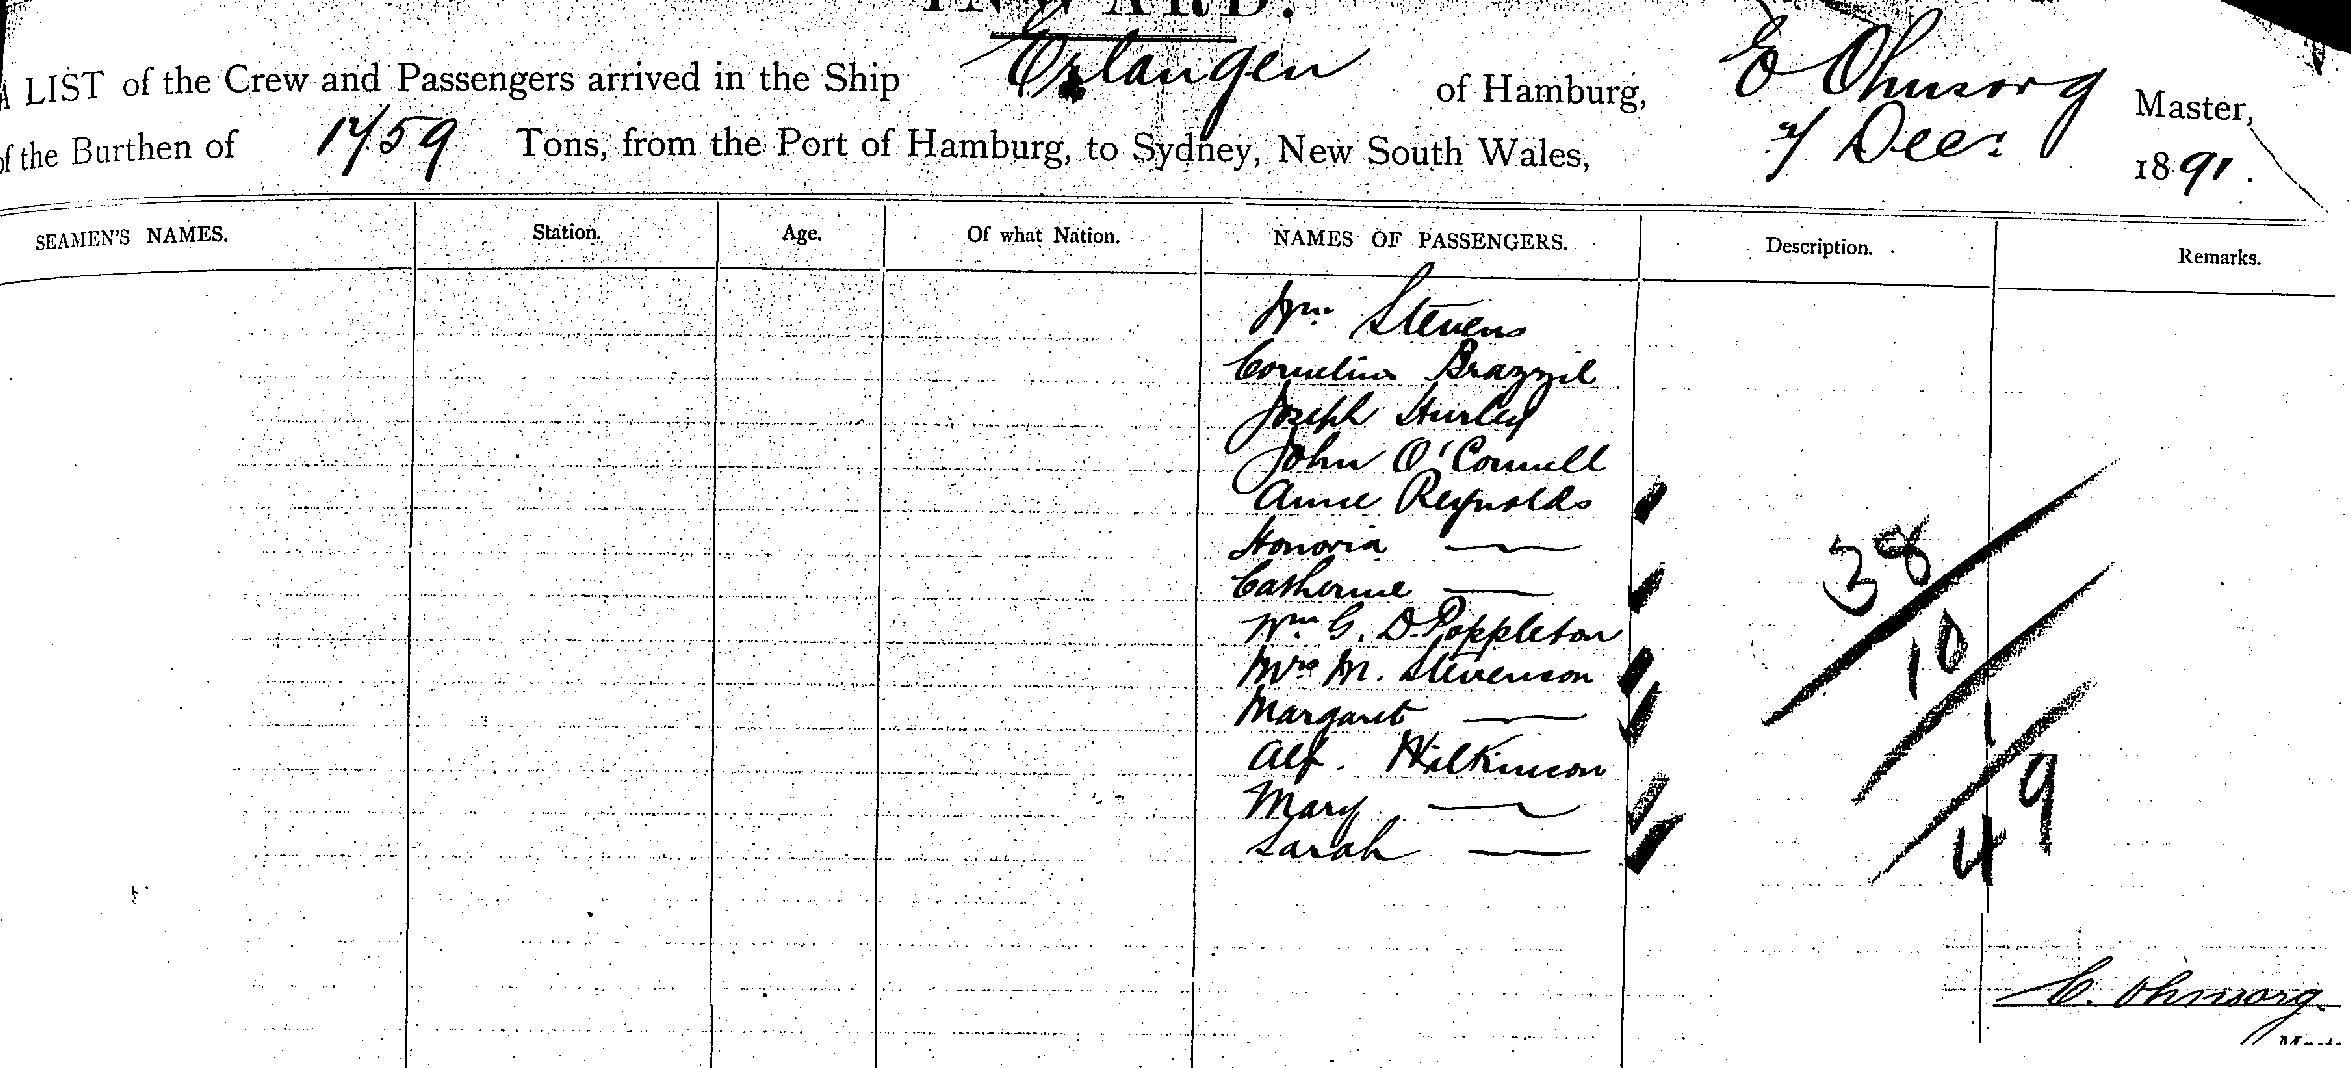 INWARD.
A LIST of the Crew and Passengers arrived in the Ship Erlangen of Hamburg, E Ohnsorg Master,
of the Burthen of 1759 Tons, from the Port of Hamburg, to Sydney, New South Wales, Decr 1891.
SEAMEN'S NAMES. Station. Age. Of what Nation. NAMES OF PASSENGERS. Description. Remarks.
Wm Stevens
Cornelius Brazzil
Joseph Hurley
John O'Connell
Anne Reynolds
Honoria —
Catherine —
Wm G. D. Poppleton
Mrs M. Stevenson
Margaret —
Alf. Wilkinson
Mary —
Sarah —
38
10
1
49
E. Ohnsorg